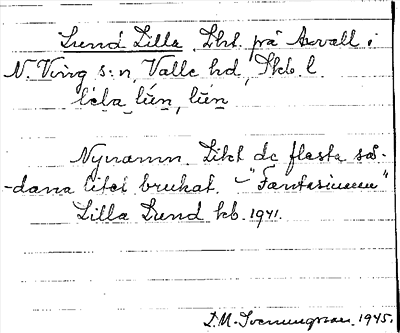 Lund Lilla, Lht. på Axvall i
N. Ving s:n, Valle hd, Skb. l.
lɩ́la lún, lún
Nynamn. Likt de flesta så-
dana litet brukat. – "Fantasinamn"
Lilla Lund kb. 1941.
D.M. Svenungsson 1945.